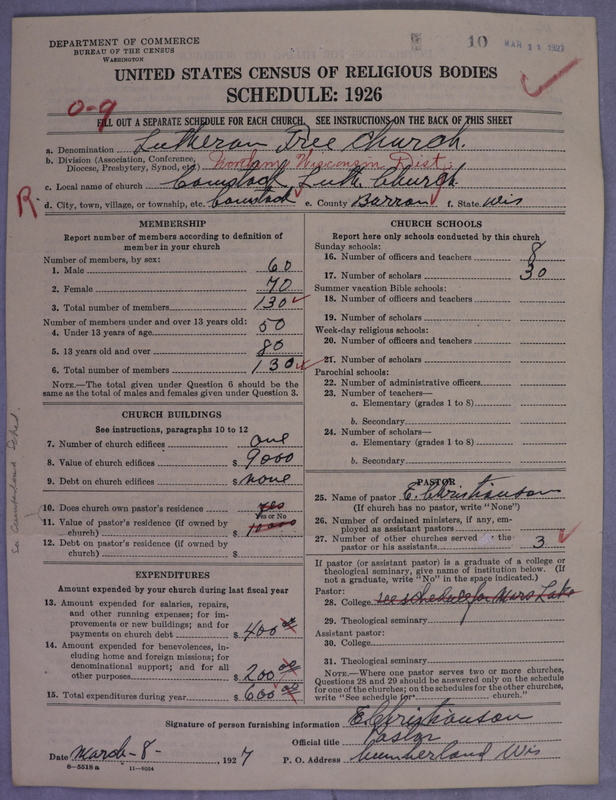 DEPARTMENT OF COMMERCE
BUREAU OF THE CENSUS
WASHINGTON
10 MAR 11 1927
UNITED STATES CENSUS OF RELIGIOUS BODIES
SCHEDULE: 1926
0-9
FILL OUT A SEPARATE SCHEDULE FOR EACH CHURCH. SEE INSTRUCTIONS ON THE BACK OF THIS SHEET
a. Denomination Lutheran Free Church.
b. Division (Association, Conference, Diocese, Presbytery, Synod, etc.) Northern Wisconsin Dist.
c. Local name of church Comstock Luth. Church.
R. d. City, town, village, or township, etc. Comstock e. County Barron f. State Wis
MEMBERSHIP
Report number of members according to definition of
member in your church
Number of members, by sex:
1. Male 60
2. Female 70
3. Total number of members 130
Number of members under and over 13 years old:
4. Under 13 years of age 50
5. 13 years old and over 80
6. Total number of members 130
NOTE.—The total given under Question 6 should be the
same as the total of males and females given under Question 3.
CHURCH BUILDINGS
See instructions, paragraphs 10 to 12
7. Number of church edifices one
8. Value of church edifices $ 9000
9. Debt on church edifices $ none
10. Does church own pastor's residence yes
Yes or No
11. Value of pastor's residence (if owned by
church) $
12. Debt on pastor's residence (if owned by
church) $
See Cumberland Sched.
EXPENDITURES
Amount expended by your church during last fiscal year
13. Amount expended for salaries, repairs,
and other running expenses; for im-
provements or new buildings; and for
payments on church debt $ 400 00
14. Amount expended for benevolences, in-
cluding home and foreign missions; for
denominational support; and for all
other purposes $ 200 00
15. Total expenditures during year $ 600 00
CHURCH SCHOOLS
Report here only schools conducted by this church
Sunday schools:
16. Number of officers and teachers 8
17. Number of scholars 30
Summer vacation Bible schools:
18. Number of officers and teachers
19. Number of scholars
Week-day religious schools:
20. Number of officers and teachers
21. Number of scholars
Parochial schools:
22. Number of administrative officers
23. Number of teachers—
a. Elementary (grades 1 to 8)
b. Secondary
24. Number of scholars—
a. Elementary (grades 1 to 8)
b. Secondary
PASTOR
25. Name of pastor E. Christianson
(If church has no pastor, write "None")
26. Number of ordained ministers, if any, em-
ployed as assistant pastors
27. Number of other churches served by the
pastor or his assistants 3
If pastor (or assistant pastor) is a graduate of a college or
theological seminary, give name of institution below. (If
not a graduate, write "No" in the space indicated.)
Pastor:
28. College see schedule for Lake
29. Theological seminary
Assistant pastor:
30. College
31. Theological seminary
NOTE.—Where one pastor serves two or more churches,
Questions 28 and 29 should be answered only on the schedule
for one of the churches; on the schedules for the other churches,
write "See schedule for church."
Signature of person furnishing information E. Christianson
Official title Pastor
Date March-8-, 1927 P. O. Address Cumberland Wis
8-5518a 11-9064